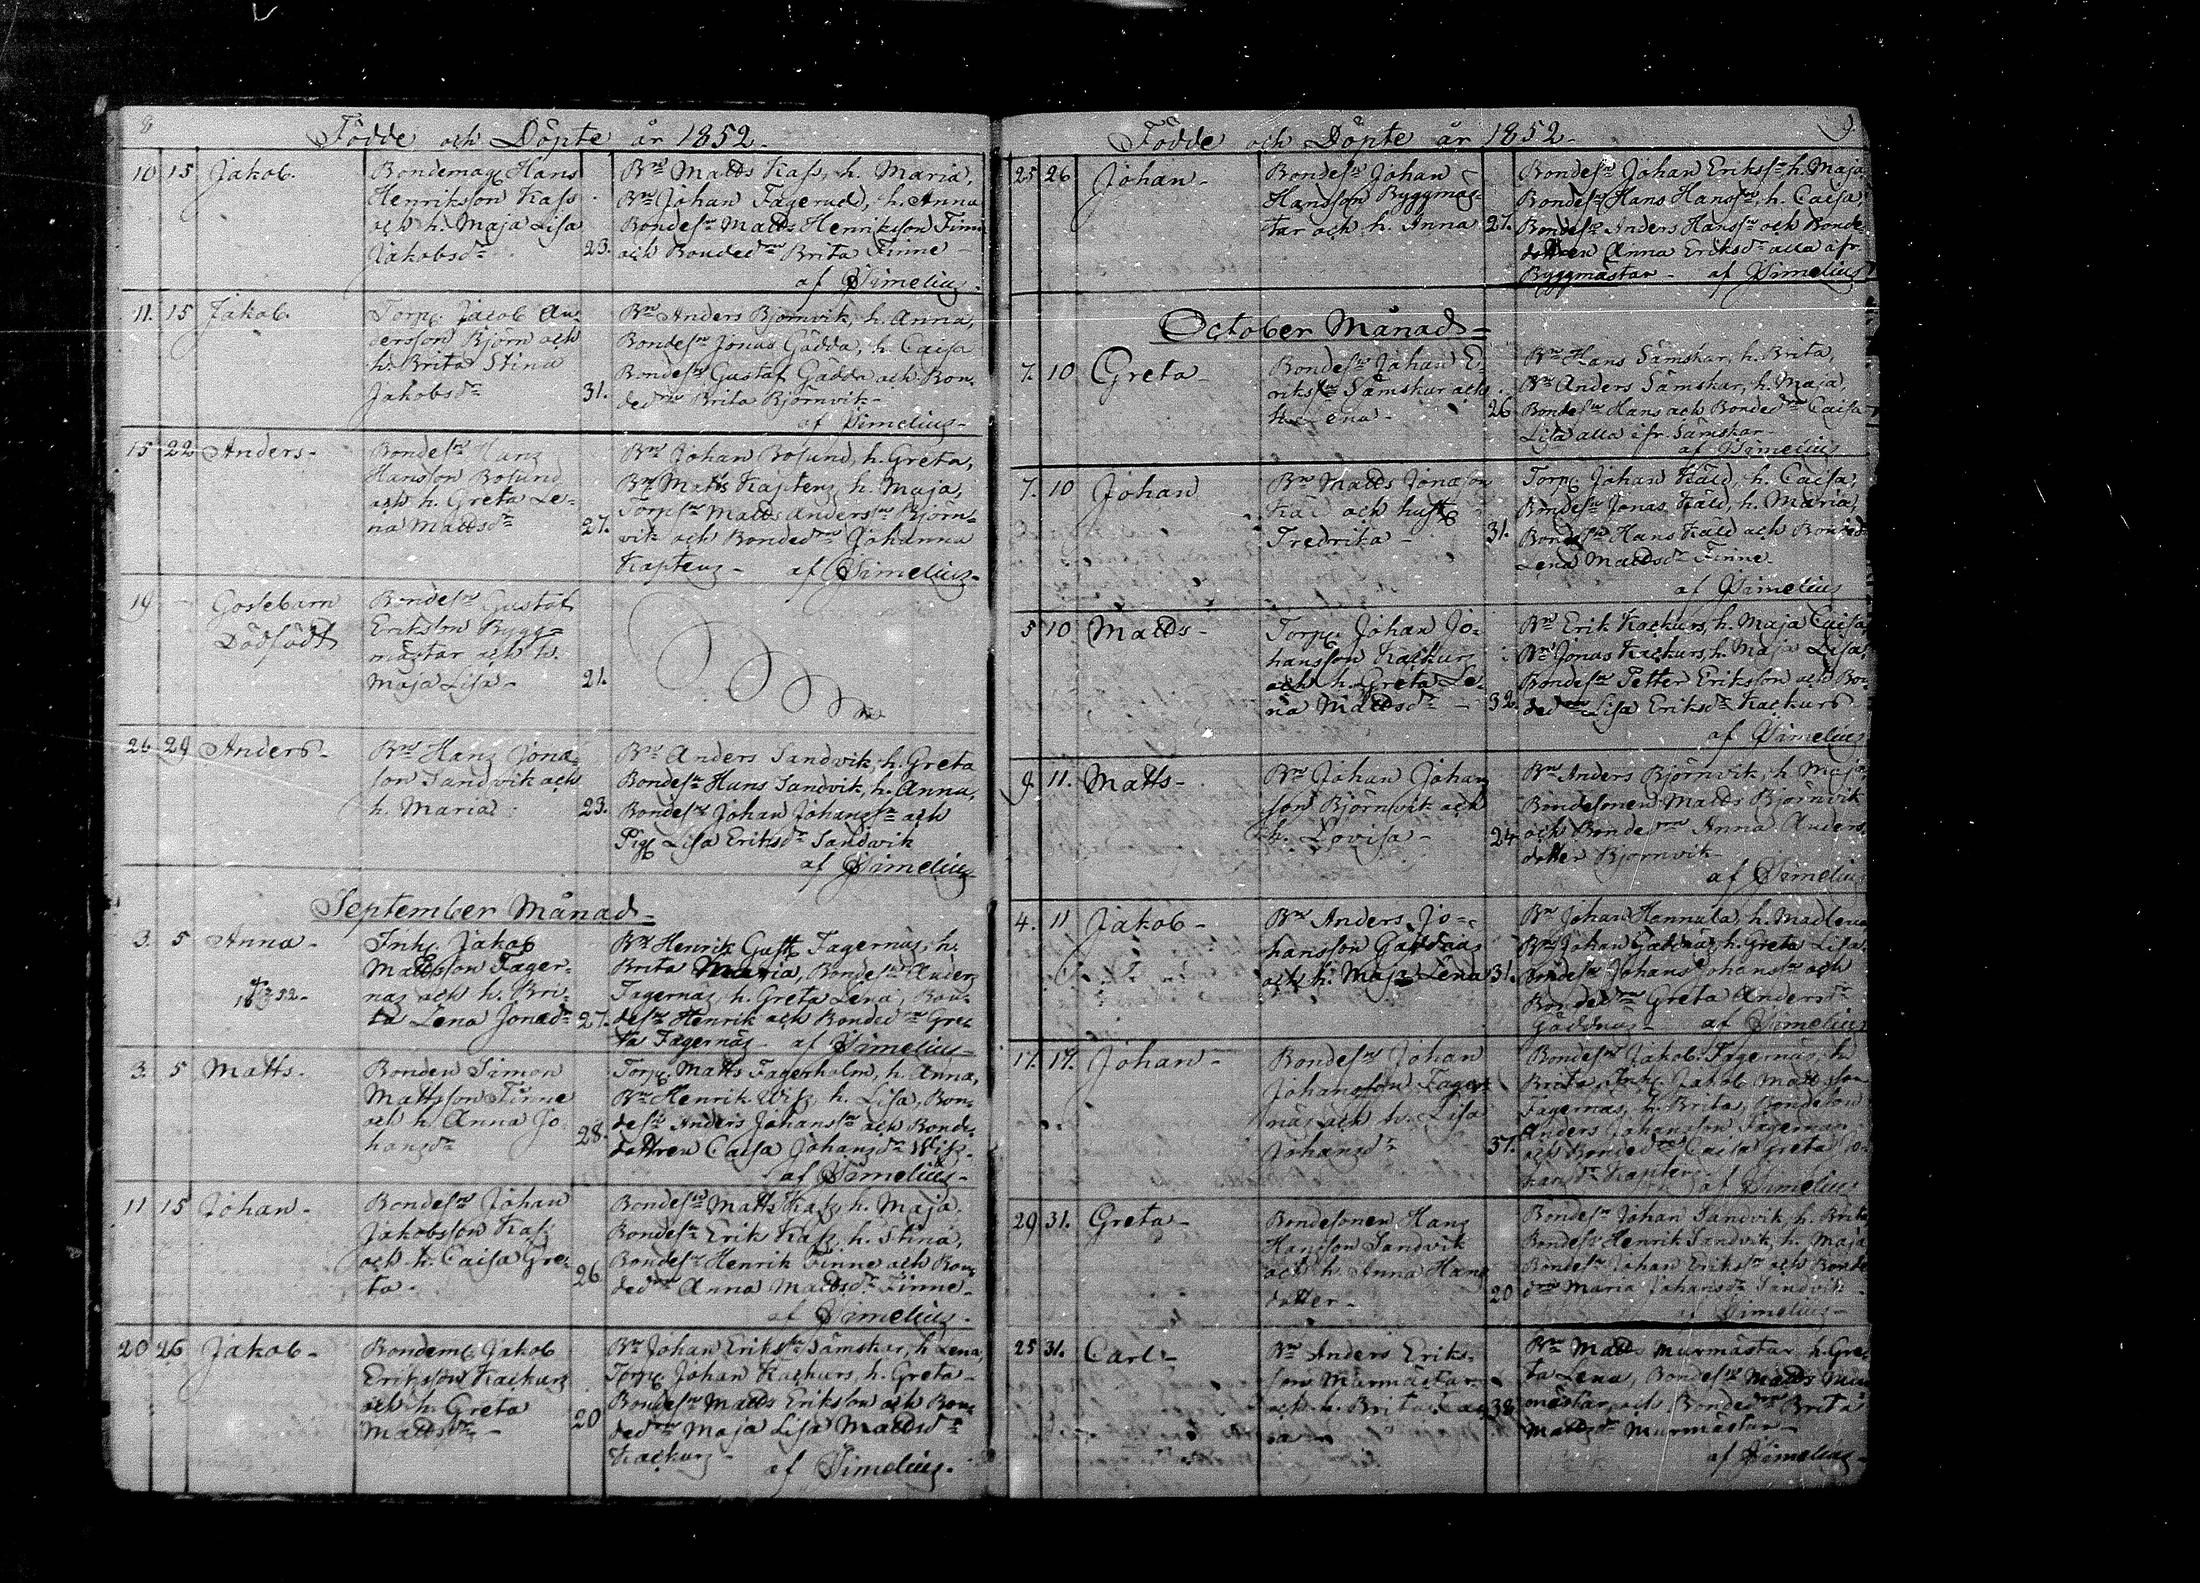 8
Födde och Döpte år 1852.
10 15 Jakob. Bondemåg Hans
Henriksson Kass
och h. Maja Lisa
Jakobsdr 23.
Bn Matts Kass, h. Maria,
Bn Johan Fagerudd, h. Anna
Bondesn Matts Henriksson Finne
och Bondedrn Brita Finne
af Simelius.
11. 15 Jakob. Torp. Jacob An-
dersson Björn och
h. Brita Stina
Jakobsdr 31.
Bn Anders Björnvik, h. Anna,
Bondesn Jonas Gädda, h. Caisa
Bondesn Gustaf Gädda och Bon-
dedrn Brita Björnvik-
af Simelius-
15 22 Anders- Bondesn Hans
Hansson Bosund
och h. Greta Le-
na Mattsdr 27.
Bn Johan Bosund, h. Greta,
Bn Matts Kaptens, h. Maja,
Torpsn Matts Anderssn Björn-
vik och Bondedrn Johanna
Kaptens- af Simelius-
19 - Gossebarn
Dödfödt
Bondesn Gustaf
Eriksson Bygg-
mästar och h.
Maja Lisa- 21.
26 29 Anders- Bn Hans Jona-
son Sandvik och
h. Maria 23.
Bn Anders Sandvik, h. Greta
Bondesn Hans Sandvik, h. Anna,
Bondesn Johan Johanssn och
Pig. Lisa Eriksdr Sandvik
af Simelius-
September Månad-
3. 5 Anna- Inh. Jakob
Mattsson Fager-
näs och h. Bri-
ta Lena Jonæd- 27.
Bn Henrik Gust. Fagernäs, h.
Brita Maria, Bondesn Anders
Fagernäs, h. Greta Lena, Bon-
desn Henrik och Bondedrn Gre-
ta Fagernäs- af Simelius-
3. 5 Matts- Bonden Simon
Mattsson Finne
och h. Anna Jo-
hansdr 28.
Torp. Matts Fagerholm, h. Anna,
Bn Henrik Wiss, h. Lisa, Bon-
desn Anders Johanssn och Bonde-
dottren Caisa Johansdr Wiss-
af Simelius-
11 15 Johan- Bondesn Johan
Jakobsson Kass
och h. Caisa Gre-
ta- 26
Bondesn Matts Kass, h. Maja,
Bondesn Erik Kass, h. Stina,
Bondesn Henrik Finne och Bon-
dedrn Anna Mattsdr Finne-
af Simelius-
20 26 Jakob- Bondem. Jakob
Eriksson Kackurs
och h. Greta
Mattsdr- 20
Bn Johan Erikssn Sämskar, h. Lena,
Torp. Johan Kackurs, h. Greta-
Bondesn Matts Eriksson och Bon-
dedrn Maja Lisa Mattsdr
Kackurs- af Simelius-
9.
Födde och Döpte år 1852.
25 26 Johan- Bondesn Johan
Hansson Byggmäs-
tar och h. Anna 27.
Bondesn Johan Erikssn h. Maja
Bondesn Hans Hanssn, h. Caisa,
Bondesn Anders Hanssn och Bonde-
dottren Anna Eriksdr alla ifr.
Byggmästar- af Simelius
October Månad-
7. 10 Greta- Bondesn Johan E-
rikssn Sämskar och
h. Lena- 26
Bn Hans Sämskar, h. Brita,
Bn Anders Sämskar, h. Maja,
Bondesn Hans och Bondedrn Caisa
Lisa alla ifr. Sämskar-
af Simelius
7. 10 Johan Bn Matts Jonasson
Käld och hust.
Fredrika- 31.
Torp. Johan Käld, h. Caisa,
Bondesn Jonas Käld, h. Maria,
Bondesn Hans Käld och Bonded.
Lena Mattsdr Finne-
af Simelius
5 10 Matts- Torp. Johan Jo-
hansson Kackurs
och h. Greta Le-
na Mattsdr- 32.
Bn Erik Kackurs, h. Maja Caisa,
Bn Jonas Kackurs, h. Maja Lisa,
Bondesn Petter Eriksson och Bon-
dedrn Lisa Eriksdr Kackurs
af Simelius
9. 11. Matts- Bn Johan Johans
son Björnvik och
h. Lovisa- 24
Bn Anders Björnvik, h. Maja,
Bondesonen Matts Björnvik
och Bondedrn Anna Anders-
dotter Björnvik-
af Simelius
4. 11 Jakob- Bn Anders Jo-
hansson Gäddnäs
och h. Maja Lena 31.
Bn Johan Hannula, h. Madlena
Bn Johan Gäddnäs, h. Greta Lisa,
Bondesn Johans Johanssn och
Bondedrn Greta Andersdr
Gäddnäs- af Simelius
17. 17. Johan- Bondesn Johan
Johansson Fager-
näs och h. Lisa
Johansdr 37.
Bondesn Jakob Fagernäs, h.
Brita, Inh. Jakob Mattsson
Fagernäs, h. Brita, Bondeson
Anders Johansson Fagernäs
och Bondedrn Caisa Greta Jo-
hansdr Kaptens- af Simelius
29 31. Greta- Bondesonen Hans
Hansson Sandvik
och h. Anna Hans
dotter- 20
Bondesn Johan Sandvik, h. Brita
Bondesn Henrik Sandvik, h. Maja
Bondesn Johan Erikssn och Bonde
drn Maria Johansdr Sandvik-
af Simelius-
25 31. Carl- Bn Anders Eriks-
son Murmästar
och h. Brita Cai-
sa- 38
Bn Matts Murmästar, h. Gre-
ta Lena, Bondesn Matts Mur-
mästar, och Bondedrn Brita
Mattsdr Murmästar-
af Simelius-